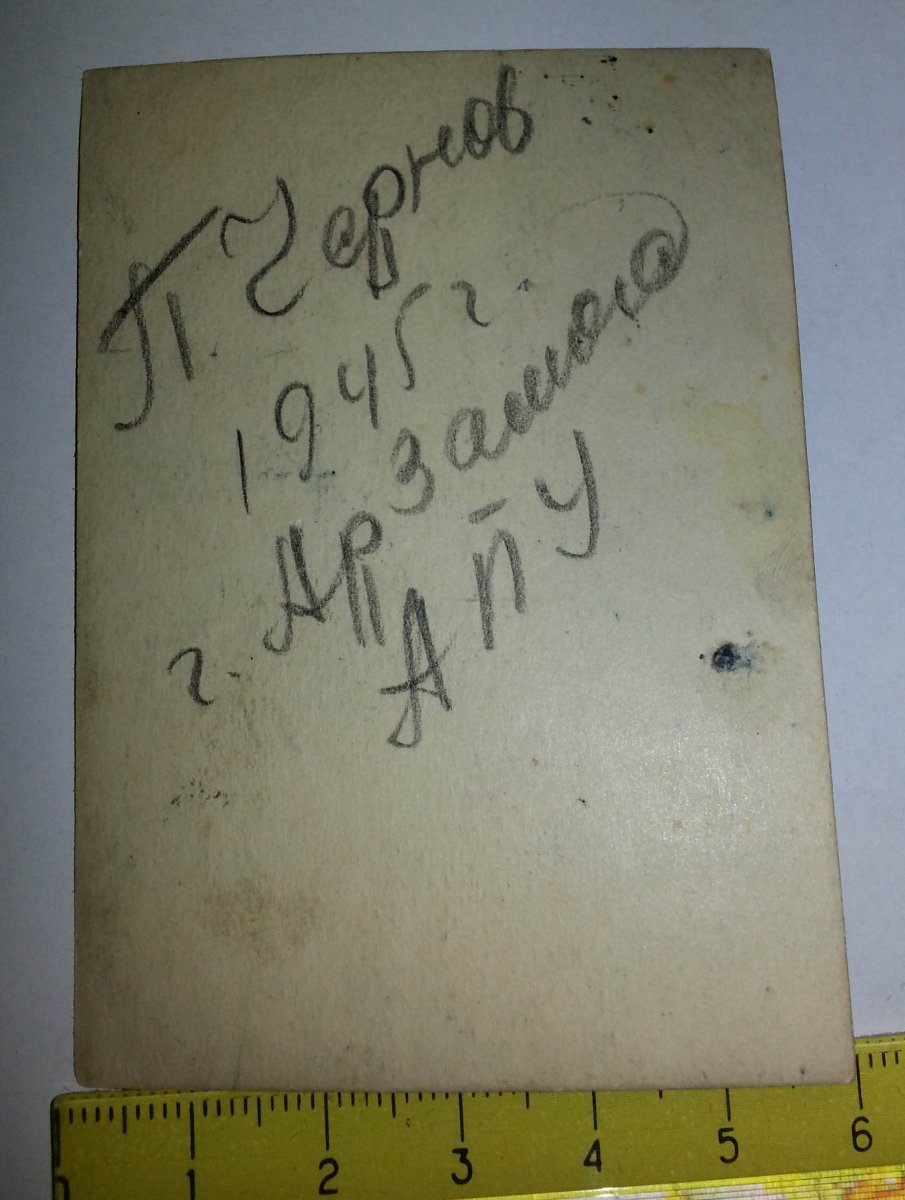 П. Чернов
1945 г.
г. Арзамаса
АПУ
1 2 3 4 5 6